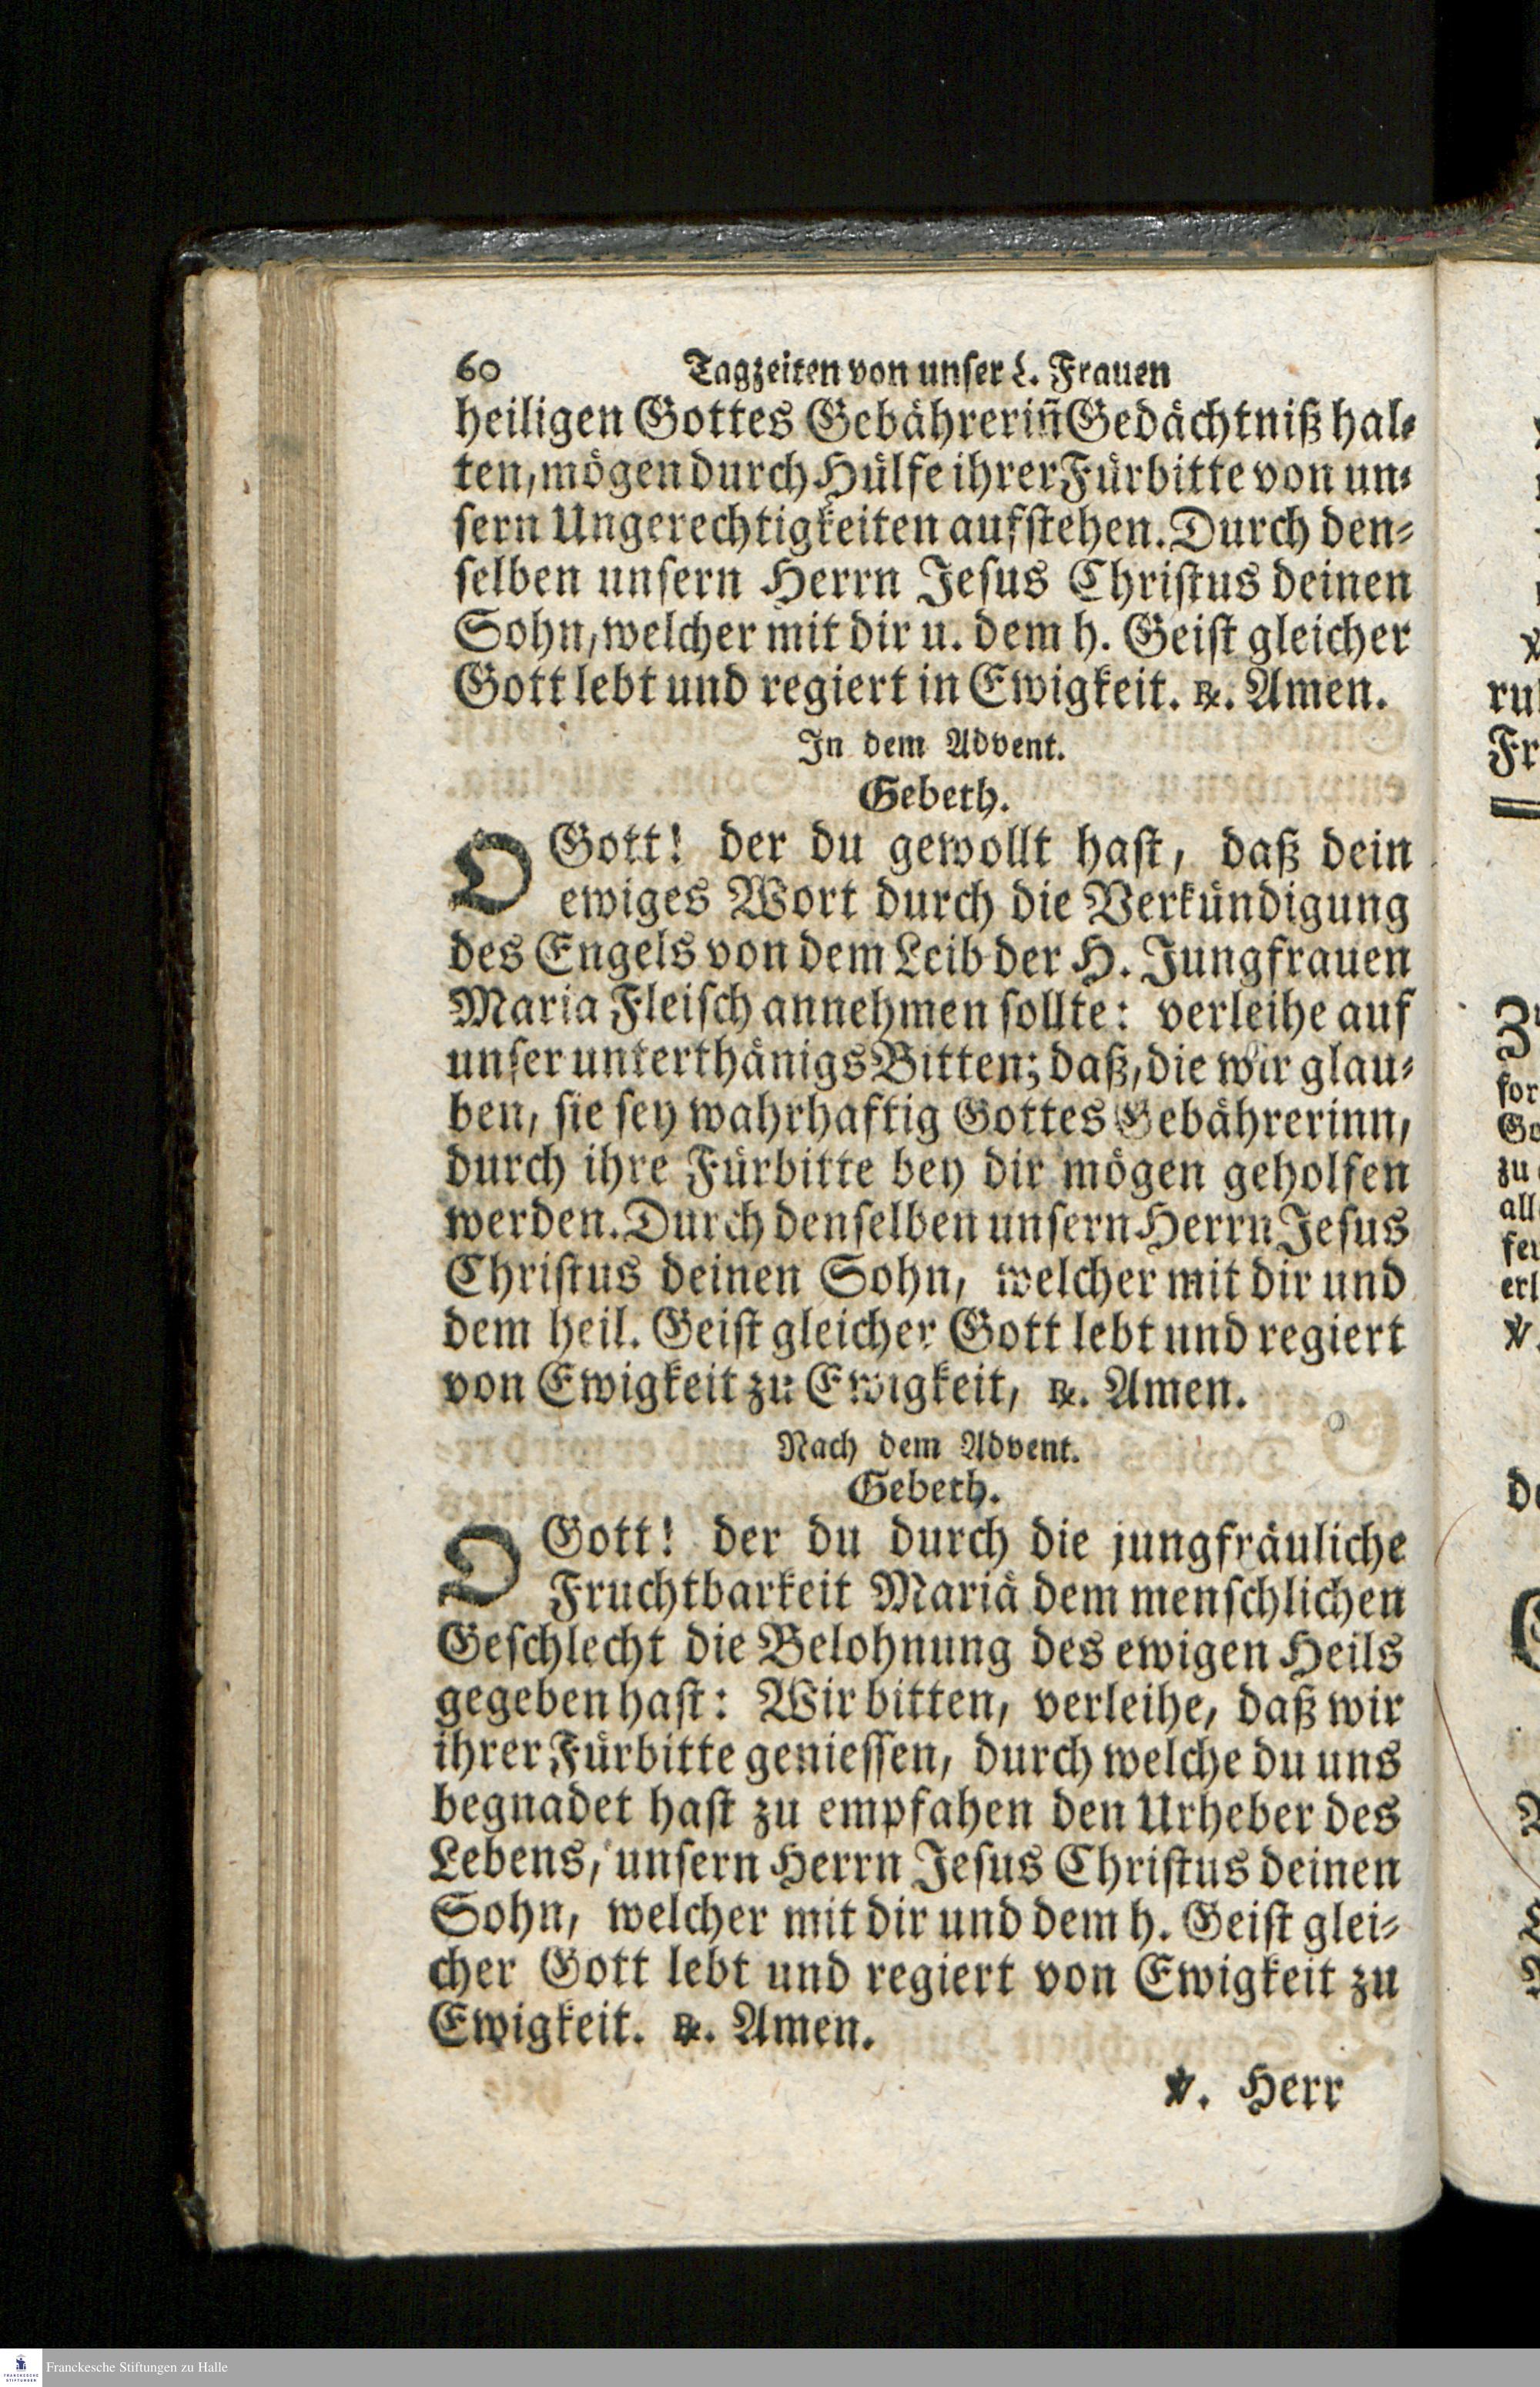 60 Tagzeiten von unser L. Frauen
heiligen Gottes Gebährerin̄ Gedächtniß hal-
ten, mögen durch Hülfe ihrer Fürbitte von un-
sern Ungerechtigkeiten aufstehen. Durch den-
selben unsern Herrn Jesus Christus deinen
Sohn, welcher mit dir u. dem h. Geist gleicher
Gott lebt und regiert in Ewigkeit. ℟. Amen.
In dem Advent.
Gebeth.
O Gott! der du gewollt hast, daß dein
ewiges Wort durch die Verkündigung
des Engels von dem Leib der H. Jungfrauen
Maria Fleisch annehmen sollte: verleihe auf
unser unterthänigs Bitten; daß, die wir glau-
ben, sie sey wahrhaftig Gottes Gebährerinn,
durch ihre Fürbitte bey dir mögen geholfen
werden. Durch denselben unsern Herrn Jesus
Christus deinen Sohn, welcher mit dir und
dem heil. Geist gleicher Gott lebt und regiert
von Ewigkeit zu Ewigkeit, ℟. Amen.
Nach dem Advent.
Gebeth.
O Gott! der du durch die jungfräuliche
Fruchtbarkeit Mariä dem menschlichen
Geschlecht die Belohnung des ewigen Heils
gegeben hast: Wir bitten, verleihe, daß wir
ihrer Fürbitte geniessen, durch welche du uns
begnadet hast zu empfahen den Urheber des
Lebens, unsern Herrn Jesus Christus deinen
Sohn, welcher mit dir und dem h. Geist glei-
cher Gott lebt und regiert von Ewigkeit zu
Ewigkeit. ℟. Amen.
℣. Herr
Franckesche Stiftungen zu Halle